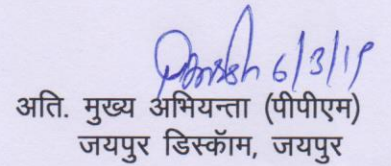 6/3/19
अति. मुख्य अभियन्ता (पीपीएम)
जयपुर डिस्कॉम, जयपुर